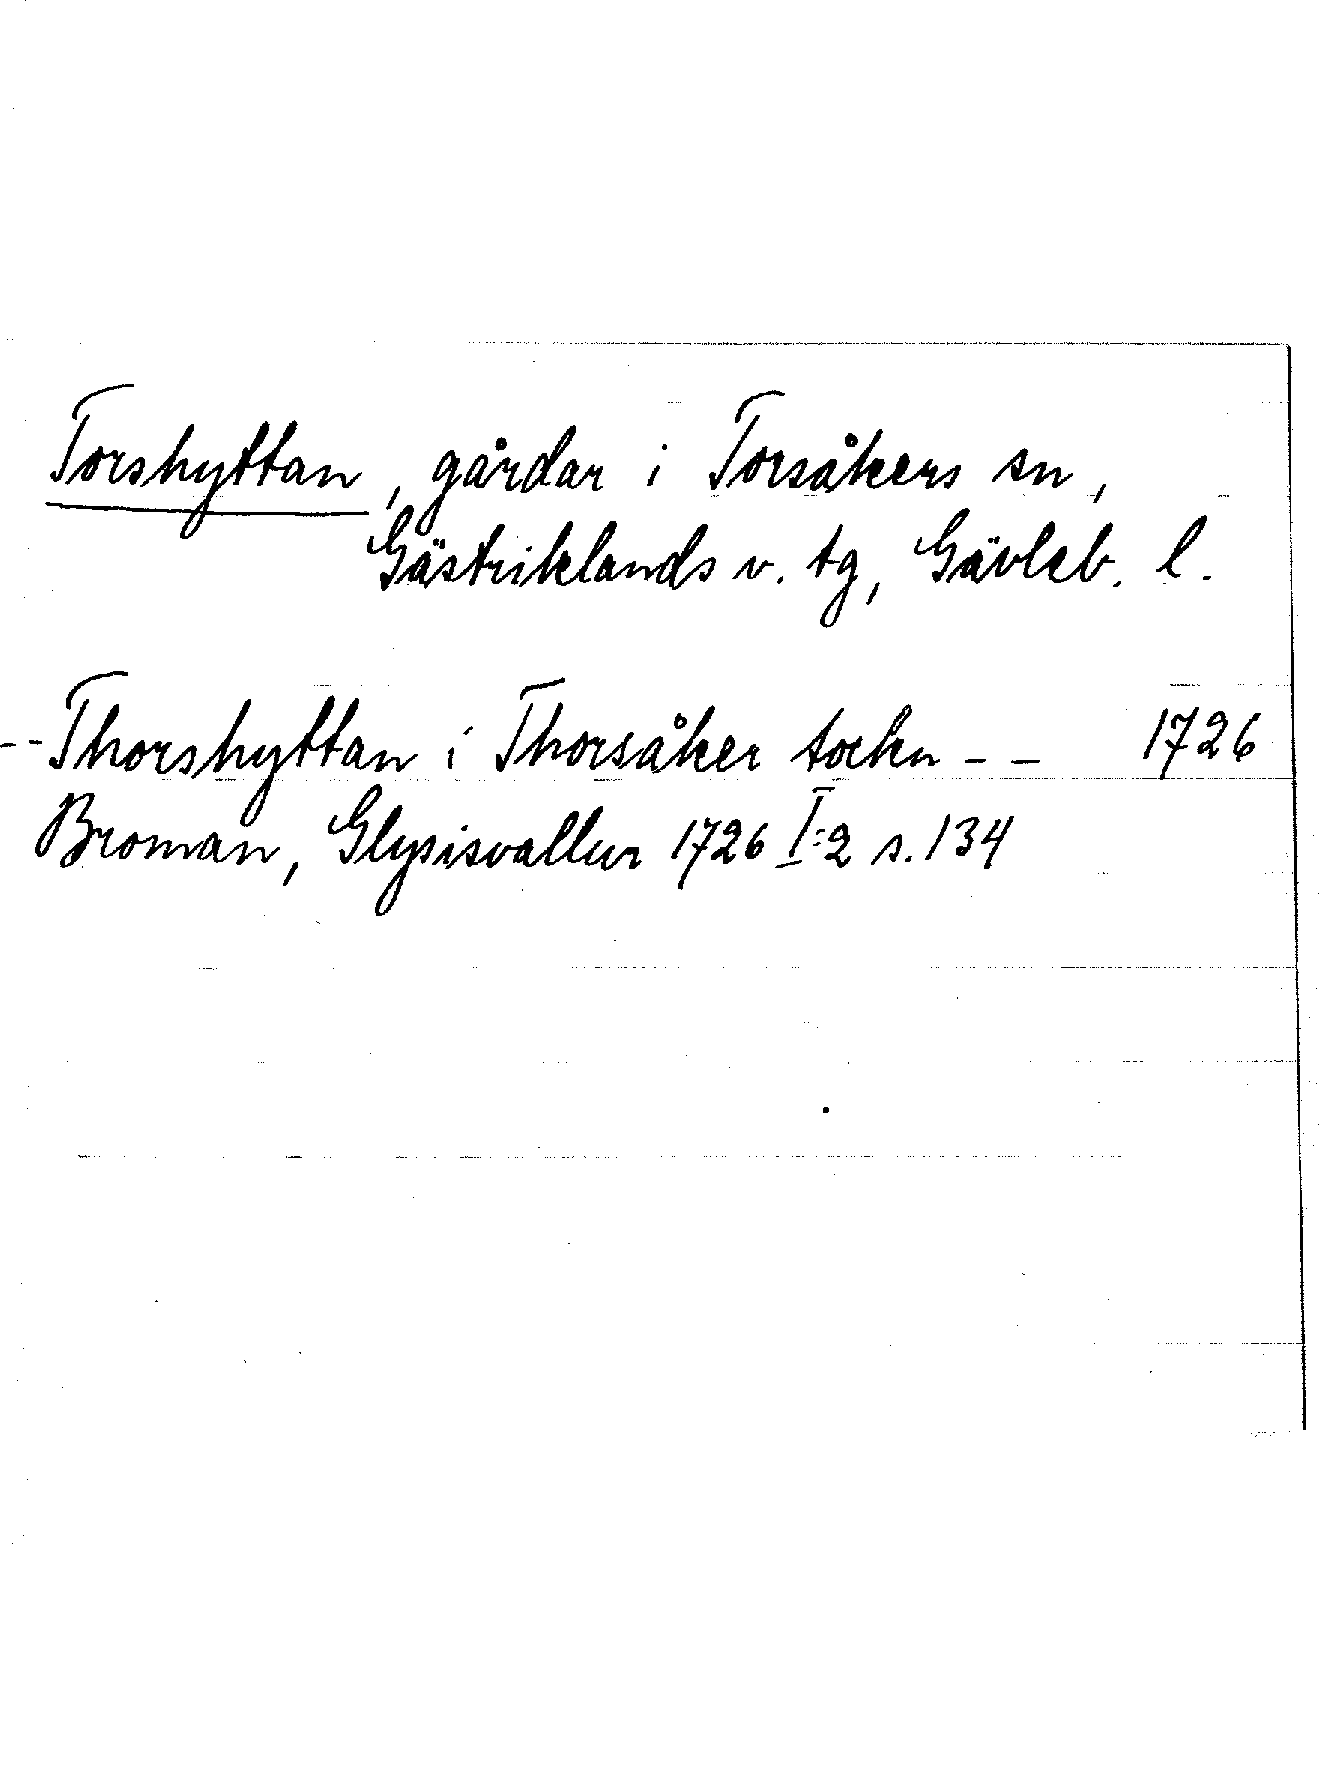 Torshyttan, gårdar i Torsåkers sn,
Gästriklands v. tg, Gävleb. l.
-- Thorshyttan i Thorsåker sockn -- 1726
Broman, Glysisvallur 1726 I:2 s. 134